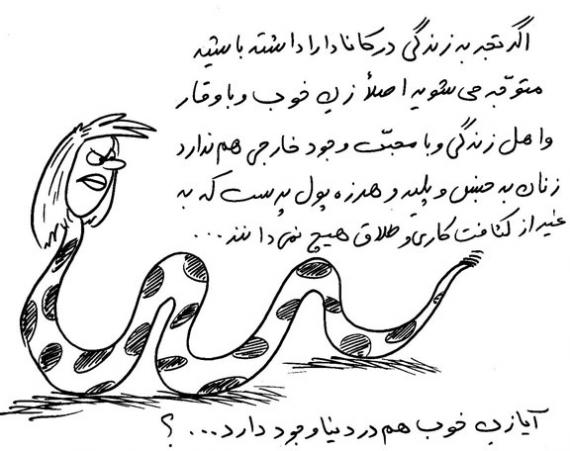 اگر تجربه زندگی در کانادا را داشته باشید
متوجّه می شوید اصلاً زن خوب و باوقار
و اهل زندگی و با محبّت وجود خارجی هم ندارد
زنان بد جنس و پلید و هرزه پول پرست که به
غیر از کثافت کاری و طلاق هیچ نمی دانند ...
آیا زن خوب هم در دنیا وجود دارد ... ؟